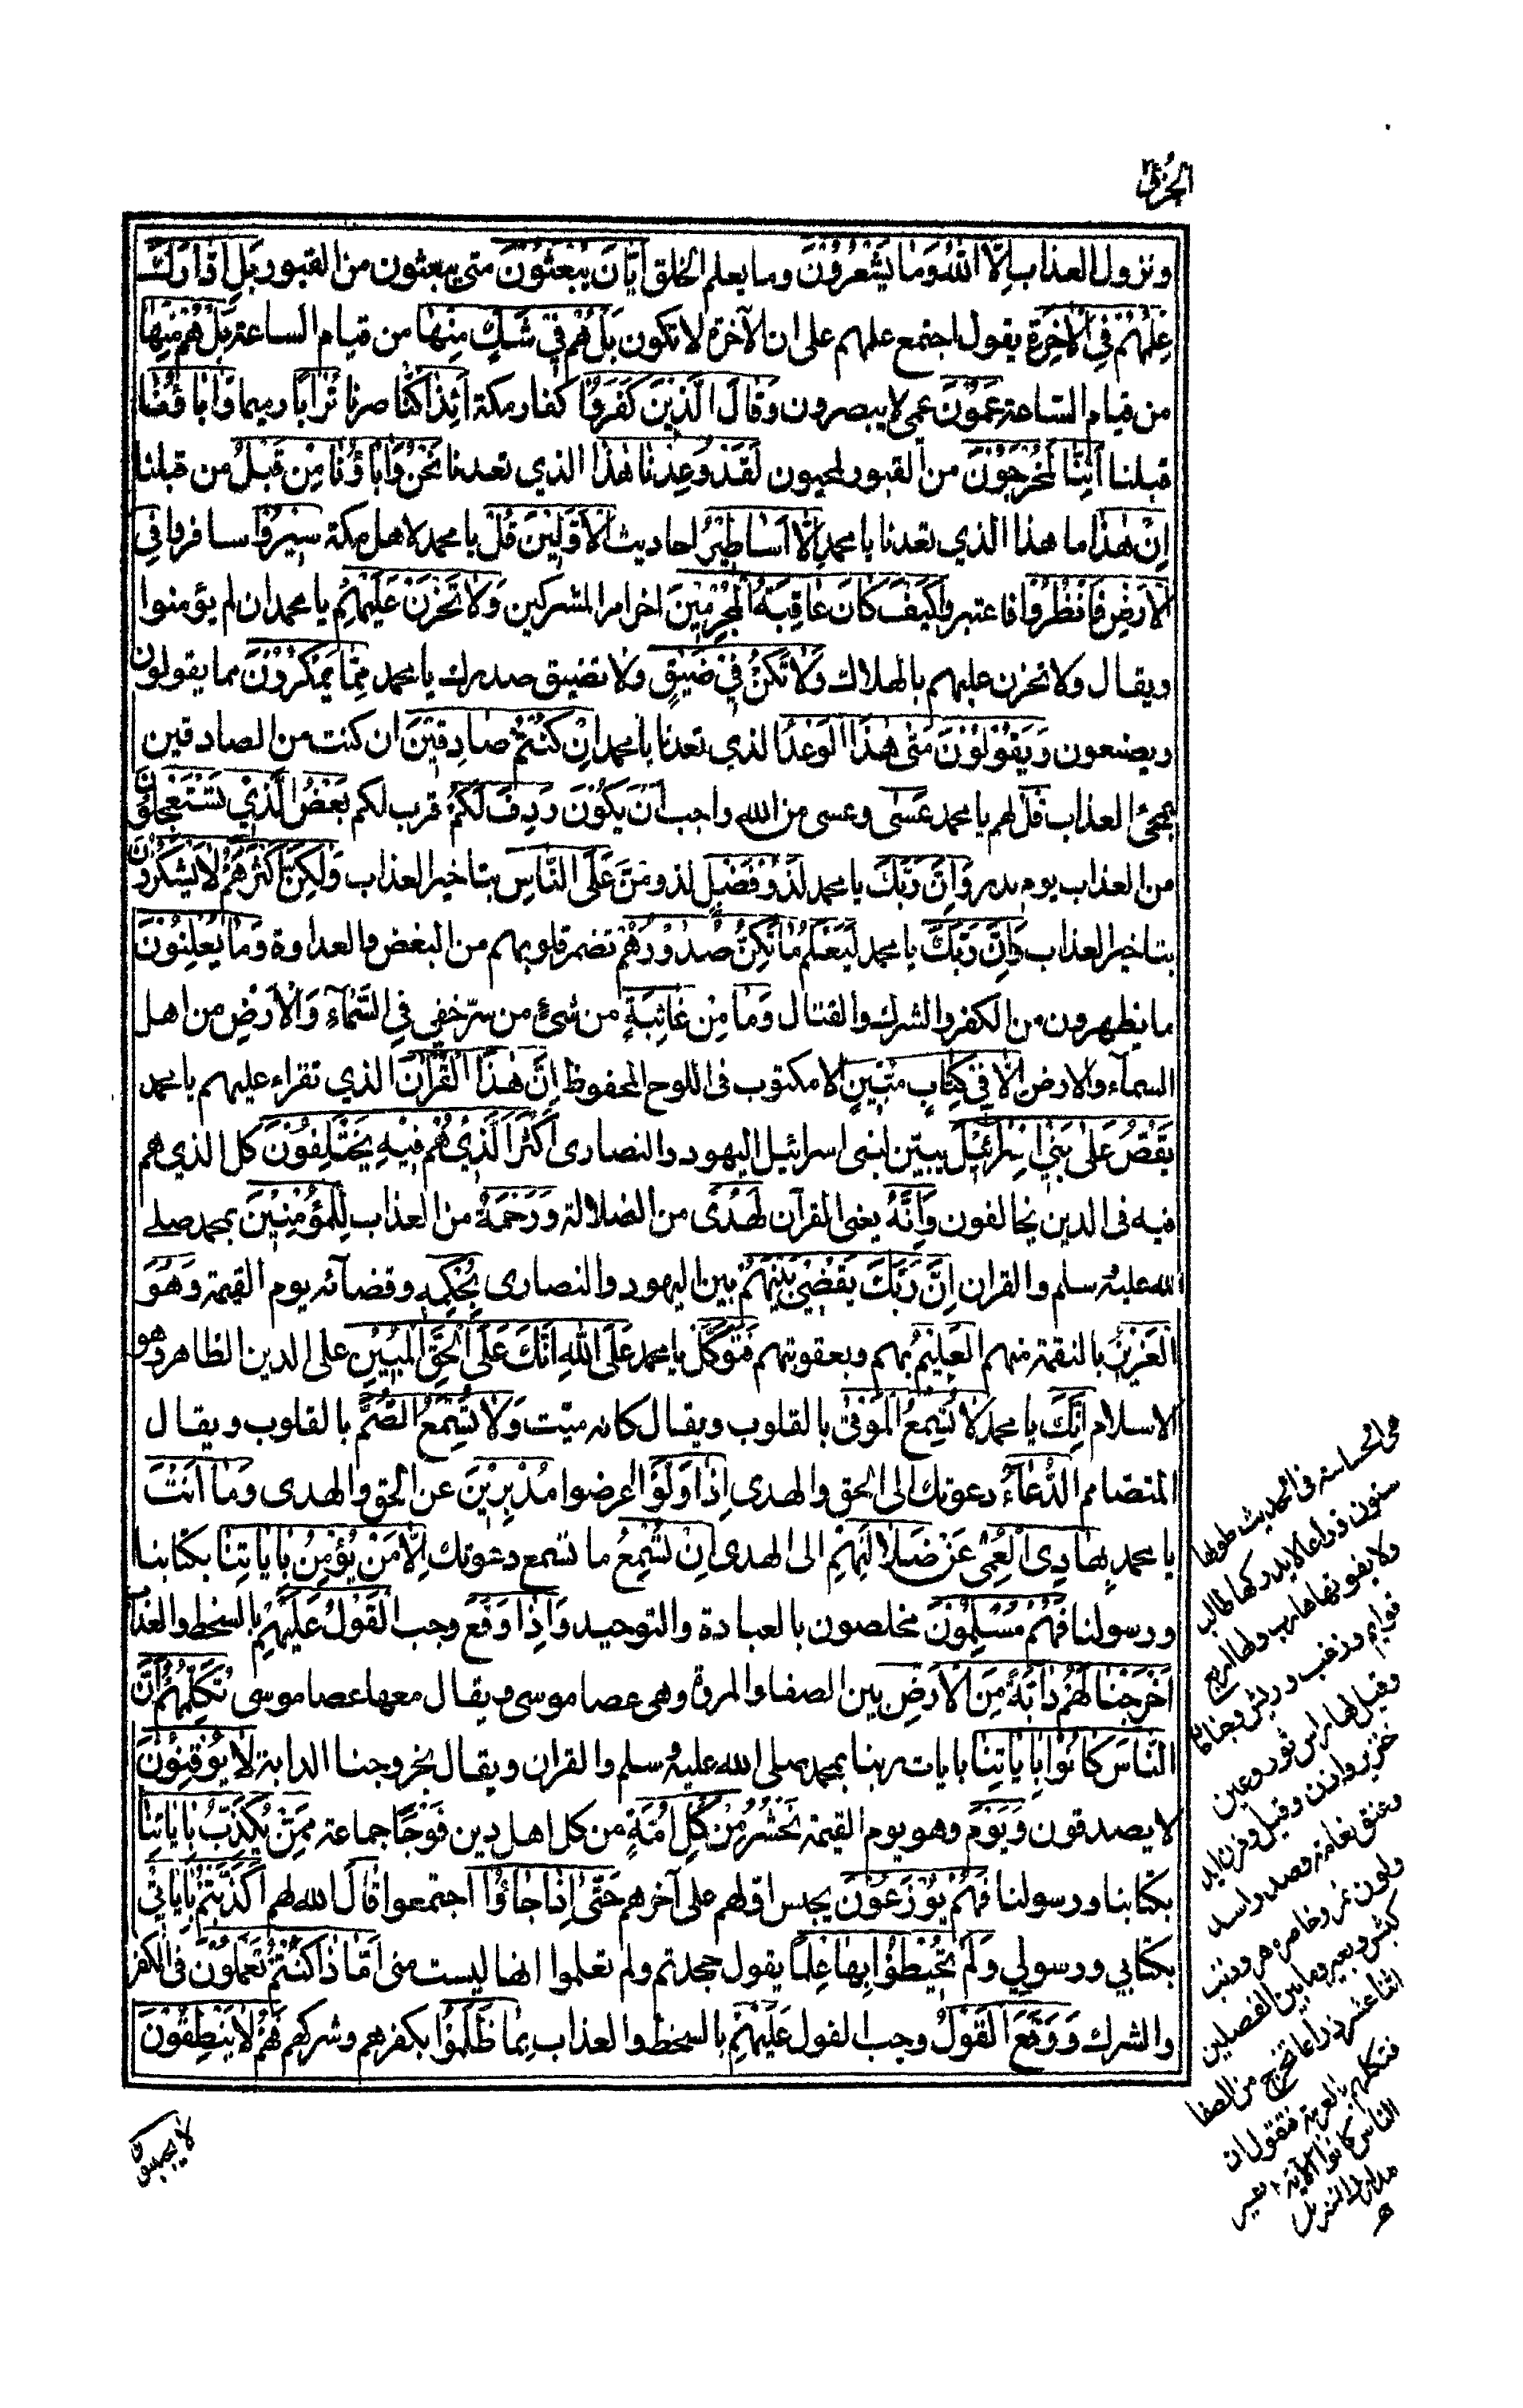 الجزء ٢٠
ونزول العذاب اِلَّا اللّٰهُ وَمَا يَشْعُرُوْنَ وما يعلم الخلق اَيَّانَ يُبْعَثُوْنَ متى يبعثون من القبور بَلِ ادّٰرَكَ
عِلْمُهُمْ فِي الْاٰخِرَةِ يقول اجتمع علمهم على ان الآخرة لا تكون بَلْ هُمْ فِيْ شَكٍّ مِنْهَا من قيام الساعة بَلْ هُمْ مِنْهَا
من قيام الساعة عَمُوْنَ عمي لا يبصرون وَقَالَ الَّذِيْنَ كَفَرُوْا كفار مكة اَئِذَا كُنَّا صرنا تُرَابًا رميما وَاٰبَاؤُنَا
قبلنا اَئِنَّا لَمُخْرَجُوْنَ من القبور لمحيون لَقَدْ وُعِدْنَا هٰذَا الذي تعدنا نَحْنُ وَاٰبَاؤُنَا مِنْ قَبْلُ من قبلنا
اِنْ هٰذَا ما هذا الذي تعدنا يا محمد اِلَّا اَسَاطِيْرُ احاديث الْاَوَّلِيْنَ قُلْ يا محمد لاهل مكة سِيْرُوْا سافروا فِي
الْاَرْضِ فَانْظُرُوْا فاعتبروا كَيْفَ كَانَ عَاقِبَةُ الْمُجْرِمِيْنَ اخر امر المشركين وَلَا تَحْزَنْ عَلَيْهِمْ يا محمد ان لم يؤمنوا
ويقال ولا تحزن عليهم بالهلاك وَلَا تَكُنْ فِيْ ضَيْقٍ ولا تضيق صدرك يا محمد مِمَّا يَمْكُرُوْنَ مما يقولون
ويصنعون وَيَقُوْلُوْنَ مَتٰى هٰذَا الْوَعْدُ الذي تعدنا يا محمد اِنْ كُنْتُمْ صَادِقِيْنَ ان كنت من الصادقين
بمجئ العذاب قُلْ لهم يا محمد عَسٰى وعسى من الله واجب اَنْ يَكُوْنَ رَدِفَ لَكُمْ قرب لكم بَعْضُ الَّذِيْ تَسْتَعْجِلُوْنَ
من العذاب يوم بدر وَاِنَّ رَبَّكَ يا محمد لَذُوْ فَضْلٍ لذو من عَلَى النَّاسِ بتاخير العذاب وَلٰكِنَّ اَكْثَرَهُمْ لَا يَشْكُرُوْنَ
بتاخير العذاب وَاِنَّ رَبَّكَ يا محمد لَيَعْلَمُ مَا تُكِنُّ صُدُوْرُهُمْ تضمر قلوبهم من البغض والعداوة وَمَا يُعْلِنُوْنَ
ما يظهرون من الكفر والشرك والقتال وَمَا مِنْ غَائِبَةٍ من شئ من سرّ خفي فِي السَّمَآءِ وَالْاَرْضِ من اهل
السمآء والارض اِلَّا فِيْ كِتَابٍ مُبِيْنٍ الا مكتوب فى اللوح المحفوظ اِنَّ هٰذَا الْقُرْاٰنَ الذي تقراء عليهم يا محمد
يَقُصُّ عَلٰى بَنِيْ اِسْرَائِيْلَ يبيّن لبنى اسرائيل اليهود والنصارى اَكْثَرَ الَّذِيْ هُمْ فِيْهِ يَخْتَلِفُوْنَ كل الذي هم
فيه فى الدين يخالفون وَاِنَّهُ يعني القرآن لَهُدًى من الضلالة وَرَحْمَةٌ من العذاب لِلْمُؤْمِنِيْنَ بمحمد صلى
الله عليه وسلم والقران اِنَّ رَبَّكَ يَقْضِيْ بَيْنَهُمْ بين اليهود والنصارى بِحُكْمِهٖ وقضائه يوم القيمة وَهُوَ
الْعَزِيْزُ بالنقمة منهم الْعَلِيْمُ بهم وبعقوبتهم فَتَوَكَّلْ يا محمد عَلَى اللّٰهِ اِنَّكَ عَلَى الْحَقِّ الْمُبِيْنِ على الدين الظاهر وهو
الاسلام اِنَّكَ يا محمد لَا تُسْمِعُ الْمَوْتٰى بالقلوب ويقال كانه ميّت وَلَا تُسْمِعُ الصُّمَّ بالقلوب ويقال
المتصامم الدُّعَاءَ دعوتك الى الحق والهدى اِذَا وَلَّوْا اعرضوا مُدْبِرِيْنَ عن الحق والهدى وَمَا اَنْتَ
يا محمد بِهَادِى الْعُمْيِ عَنْ ضَلَالَتِهِمْ الى الهدى اِنْ تُسْمِعُ ما تسمع دعوتك اِلَّا مَنْ يُؤْمِنُ بِاٰيَاتِنَا بكتابنا
ورسولنا فَهُمْ مُسْلِمُوْنَ مخلصون بالعبادة والتوحيد وَاِذَا وَقَعَ وجب الْقَوْلُ عَلَيْهِمْ بالسخط والعذاب
اَخْرَجْنَا لَهُمْ دَابَّةً مِنَ الْاَرْضِ بين الصفا والمروة وهى عصا موسى ويقال معها عصا موسى تُكَلِّمُهُمْ اَنَّ
النَّاسَ كَانُوْا بِاٰيَاتِنَا بايات ربنا بمحمد صلى الله عليه وسلم والقران ويقال بخروجنا الدابة لَا يُوْقِنُوْنَ
لا يصدقون وَيَوْمَ وهو يوم القيمة نَحْشُرُ مِنْ كُلِّ اُمَّةٍ من كل اهل دين فَوْجًا جماعة مِمَّنْ يُكَذِّبُ بِاٰيَاتِنَا
بكتابنا ورسولنا فَهُمْ يُوْزَعُوْنَ يحبس اولهم على آخرهم حَتّٰى اِذَا جَاؤُا اجتمعوا قَالَ الله لهم اَكَذَّبْتُمْ بِاٰيَاتِيْ
بكتابي ورسولي وَلَمْ تُحِيْطُوْا بِهَا عِلْمًا يقول جحدتم ولم تعلموا انها ليست منى اَمَّا ذَا كُنْتُمْ تَعْمَلُوْنَ فى الكفر
والشرك وَوَقَعَ الْقَوْلُ وجب القول عَلَيْهِمْ بالسخط والعذاب بِمَا ظَلَمُوْا بكفرهم وشركهم فَهُمْ لَا يَنْطِقُوْنَ
هى الجساسة فى الحديث طولها
ستون ذراعا لا يدركها طالب
ولا يفوتها هارب ولها اربع
قوايم وزغب وريش وجناحان
وقيل لها راس ثور وعين
خنزير واذن فيل وقرن ايل
وعنق نعامة وصدر اسد
ولون نمر وخاصرة هر وذنب
كبش وبعير وما بين المفصلين
اثنا عشر ذراعا تخرج من الصفا
فتكلمهم بالعربية فتقول ان
الناس كانوا الآية
مدارك التنزيل
لا يجيبون